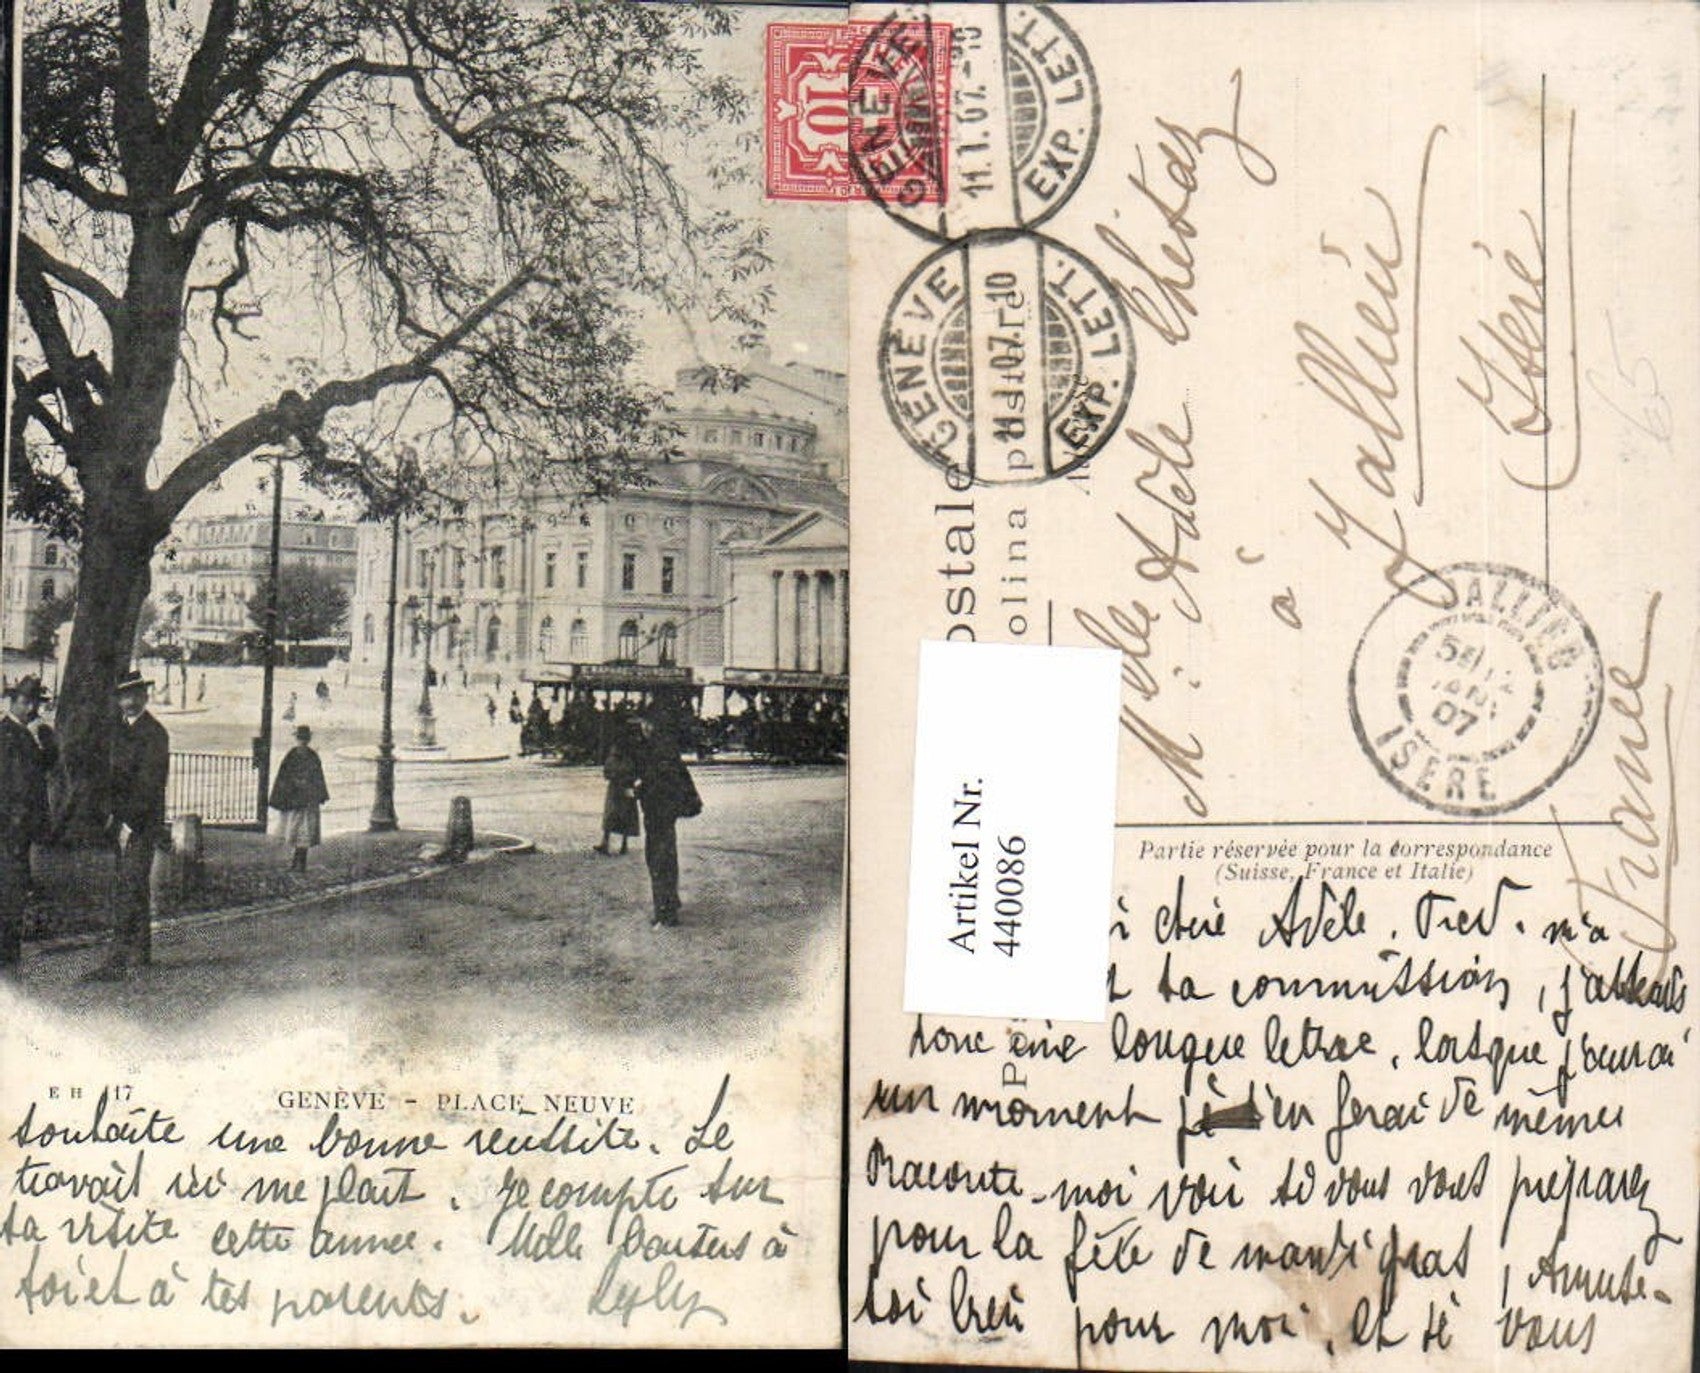 E H 117
GENÈVE - PLACE NEUVE
souhaite une bonne réussite. Le
travail ici me plait. Je compte sur
ta visite cette année. Mille baisers à
toi et à tes parents.
10
GENÈVE
11.1.07.-10
EXP. LETT.
GENÈVE
11.1.07.-10
EXP. LETT.
ostale
olina postale
Artikel Nr.
440086
Mlle Adèle
à
Jallieu
Isère
France
65
JALLIEU
JANV
07
ISERE
Partie réservée pour la correspondance
(Suisse, France et Italie)
chère Adèle. Fred. m'a
ta commission, j'attends
donc une longue lettre, lorsque j'aurai
un moment j'en ferai de même
Raconte-moi voir si vous vous préparez
pour la fête de mardi gras, Amuse-
toi bien pour moi, et si vous